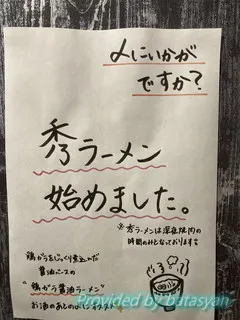 〆にいかが
ですか？
秀ラーメン
始めました。
※秀ラーメンは深夜枠内の
時間のみとなっております
鶏がらをじっくり煮込んだ
醤油ベースの
"鶏ガラ醤油ラーメン"
お酒のあとの
Provided by batasyan